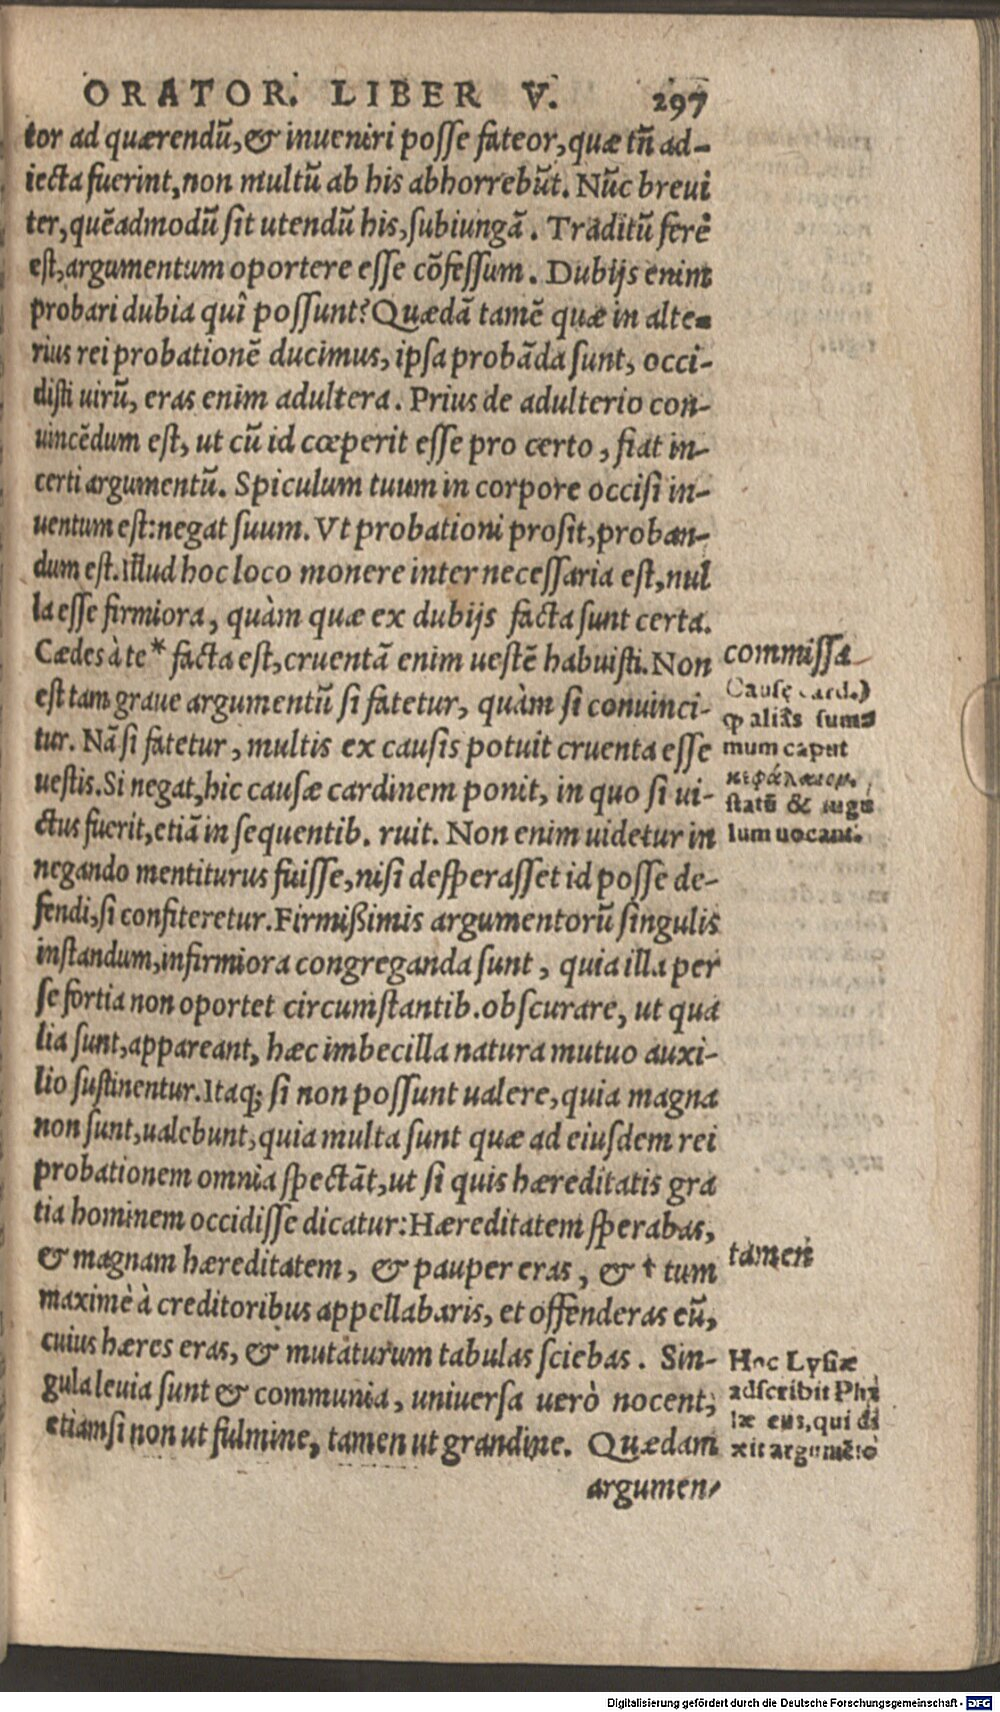 ORATOR. LIBER V. 297
tor ad quærendũ, & inueniri posse fateor, quæ tñ ad-
iecta fuerint, non multũ ab his abhorrebũt. Nũc breui
ter, quẽadmodũ sit utendũ his, subiungã. Traditũ ferè
est, argumentum oportere esse cõfessum. Dubijs enim
probari dubia quî possunt? Quædã tamẽ quæ in alte-
rius rei probationẽ ducimus, ipsa probãda sunt, occi-
disti uirũ, eras enim adultera. Prius de adulterio con-
uincẽdum est, ut cũ id cœperit esse pro certo, fiat in-
certi argumentũ. Spiculum tuum in corpore occisi in-
uentum est: negat suum. Vt probationi prosit, proban-
dum est. Illud hoc loco monere inter necessaria est, nul
la esse firmiora, quàm quæ ex dubijs facta sunt certa.
Cædes à te * facta est, cruentã enim uestẽ habuisti. Non
est tam graue argumentũ si fatetur, quàm si conuinci-
tur. Nã si fatetur, multis ex causis potuit cruenta esse
uestis. Si negat, hic causæ cardinem ponit, in quo si ui-
ctus fuerit, etiã in sequentib. ruit. Non enim uidetur in
negando mentiturus fuisse, nisi desperasset id posse de-
fendi, si confiteretur. Firmißimis argumentorũ singulis
instandum, infirmiora congreganda sunt, quia illa per
se fortia non oportet circumstantib. obscurare, ut qua
lia sunt, appareant, hæc imbecilla natura mutuo auxi-
lio sustinentur. Itaq; si non possunt ualere, quia magna
non sunt, ualebunt, quia multa sunt quæ ad eiusdem rei
probationem omnia spectãt, ut si quis hæreditatis gra
tia hominem occidisse dicatur: Hæreditatem sperabas,
& magnam hæreditatem, & pauper eras, & † tum
maximè à creditoribus appellabaris, et offenderas eũ,
cuius hæres eras, & mutaturum tabulas sciebas. Sin-
gula leuia sunt & communia, uniuersa uerò nocent,
etiamsi non ut fulmine, tamen ut grandine. Quædam
argumen-
commissa
Causę card.)
ꝙ aliàs sum
mum caput
statũ & iugu
lum uocant.
tamen
Hoc Lysiæ
adscribit
læ eus, qui di
xit argumẽto
Digitalisierung gefördert durch die Deutsche Forschungsgemeinschaft - DFG